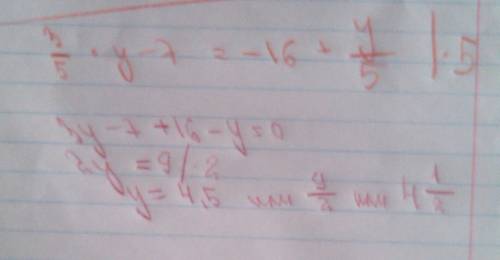 3/5 · y - 7 = -16 + y/5 | · 5
3y - 7 + 16 - y = 0
2y = 9 / : 2
y = 4,5 или 9/2 или 4 1/2